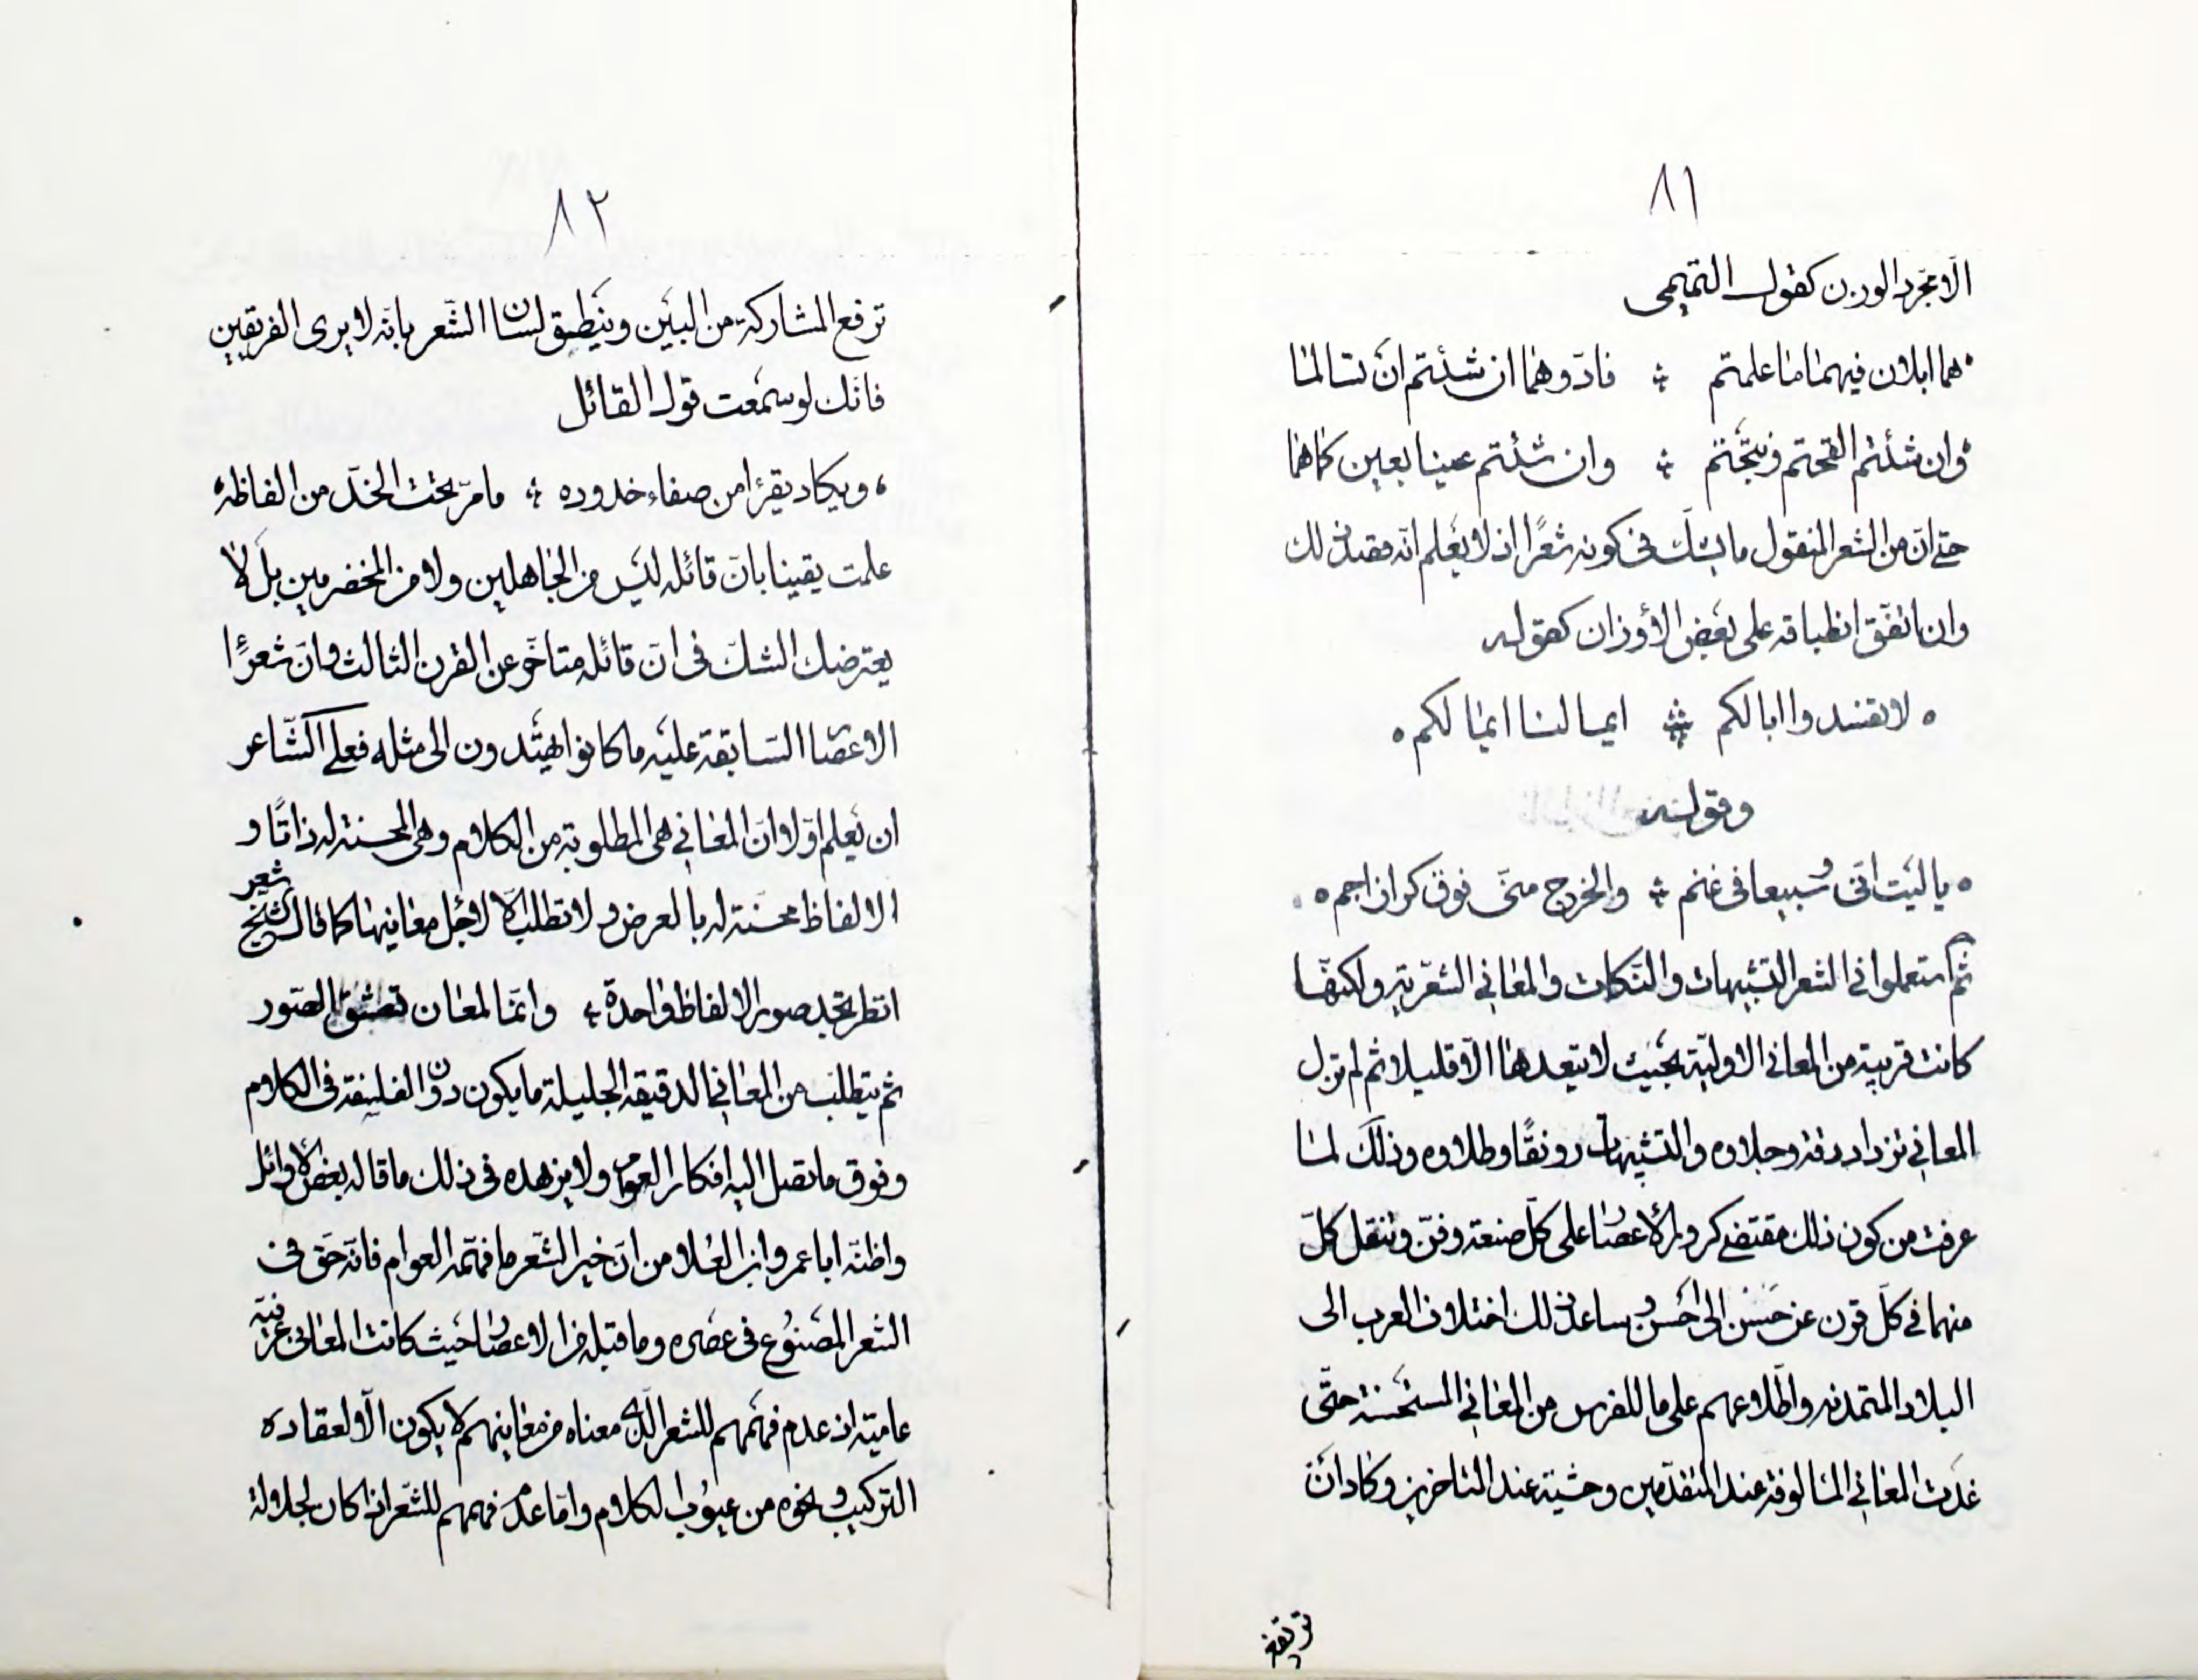 ٨١
الّا مجرّد الوزن كقول التميمى
هما ابلان فيهما ما علمتم ۞ فادّوهما ان شئتم ان نسالما
وان شئتم القحتم ونتجتم ۞ وان شئتم عينا بعين كما هما
حتى انّ من الشعر المنقول ما يشكّ فى كونه شعرًا اذ لا يعلم انّه قصد ذلك
وان اتفق انطباقه على بعض الأوزان كقوله
لا تفسدوا ابالكم ۞ ايما لنا ايما لكم
وقوله
يا ليت انّى وسبيعا فى غنم ۞ والخرج منّى فوق كراز اجم
ثم استعملوا فى الشعر التشبيهات والنكات والمعانى الشعريّة ولكنّها
كانت قريبة من المعانى الاوليّة بحيث لا يتعداها الّا قليلا ثم لم تزل
المعانى تزداد دقة وجلاوه والتشبيهات رونقًا وطلاوه وذلك لما
عرفت من كون ذلك مقتضى كرور الأعصار على كلّ صنعة وفنّ وتنقل كلّ
منهما فى كلّ قرن عن حسن الى احسن وساعد ذلك اختلاف العرب الى
البلاد المتمدنه واطّلاعهم على ما للفرس من المعانى المستحسنة حتّى
غدت المعانى المالوفة عند المتقدّمين وحشية عند المتاخرين وكاد ان
ترتفع
٨٢
ترفع المشاركة من البين وينطق لسان الشّعر بانّه لا يرى الفريقين
فانّك لو سمعت قول القائل
ويكاد يقرأ من صفاء خدوده ۞ ما مرّ تحت الخدّ من الفاظه
علمت يقينا بانّ قائله ليس من الجاهلين ولا من المخضرمين بل لا
يعترضك الشكّ فى انّ قائله متاخّر عن القرن الثالث وانّ شعرًا
الاعصار السّابقة عليه ما كانوا يهتدون الى مثله فعلى الشّاعر
ان يعلم اوّلا انّ المعانى هى المطلوبة من الكلام وهى المحسنة له ذاتًا و
الالفاظ محسّنة له بالعرض ولا تطلب الّا لاجل معانيها كما قال الشيخ
شعر
انظر تجد صور الالفاظ واحدة ۞ وانّما لمعان تعشق الصّور
ثم يتطلّب من المعانى الدقيقه الجليلة ما يكون دون الفلسفة فى الكلام
وفوق ما تصل اليه افكار العوام ولا يزهده فى ذلك ما قاله بعض الأوائل
واظنّه ابا عمرو ابن العلا من انّ خير الشّعر ما فهمه العوام فانّه حق فى
الشعر المصنوع فى عصره وما قبله من الاعصار حيث كانت المعانى عرفيّة
عاميّة اذ عدم فهمهم للشعر الّذى معناه من معانيهم لا يكون الّا لعقاده
التركيب ونحوه من عيوب الكلام وامّا عدم فهمهم للشّعر اذا كان لجلالة